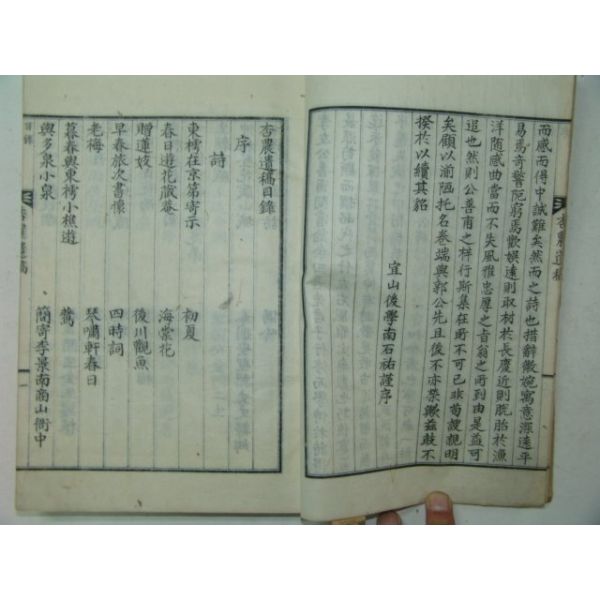 而感而得中誠難矣然而之詩也措辭微婉寓意深遠平
易馬奇警阨窮馬歡娛遠則取材於長慶近則脫胎於漁
洋隨感曲當而不失風雅忠厚之旨翁之所到由是益可
追也然則公善甫之梓行斯集在所不可已非苟說親明
矣顧以湔陋托名卷端與郭公先且後不亦榮歟益敲不
揆於以續其貂
宜山後學南石祐謹序
杏農遺稿
杏農遺稿目錄
序
詩
東樗在京第寄示 初夏
春日遊花藏庵 海棠花
贈蓮妓 後川觀魚
早春旅次書懷 四時詞
老梅 琴嘯軒春日
暮春與東樗小樵遊 鶯
與多泉小泉 簡寄李景南商山衙中
目錄
杏農遺稿
一